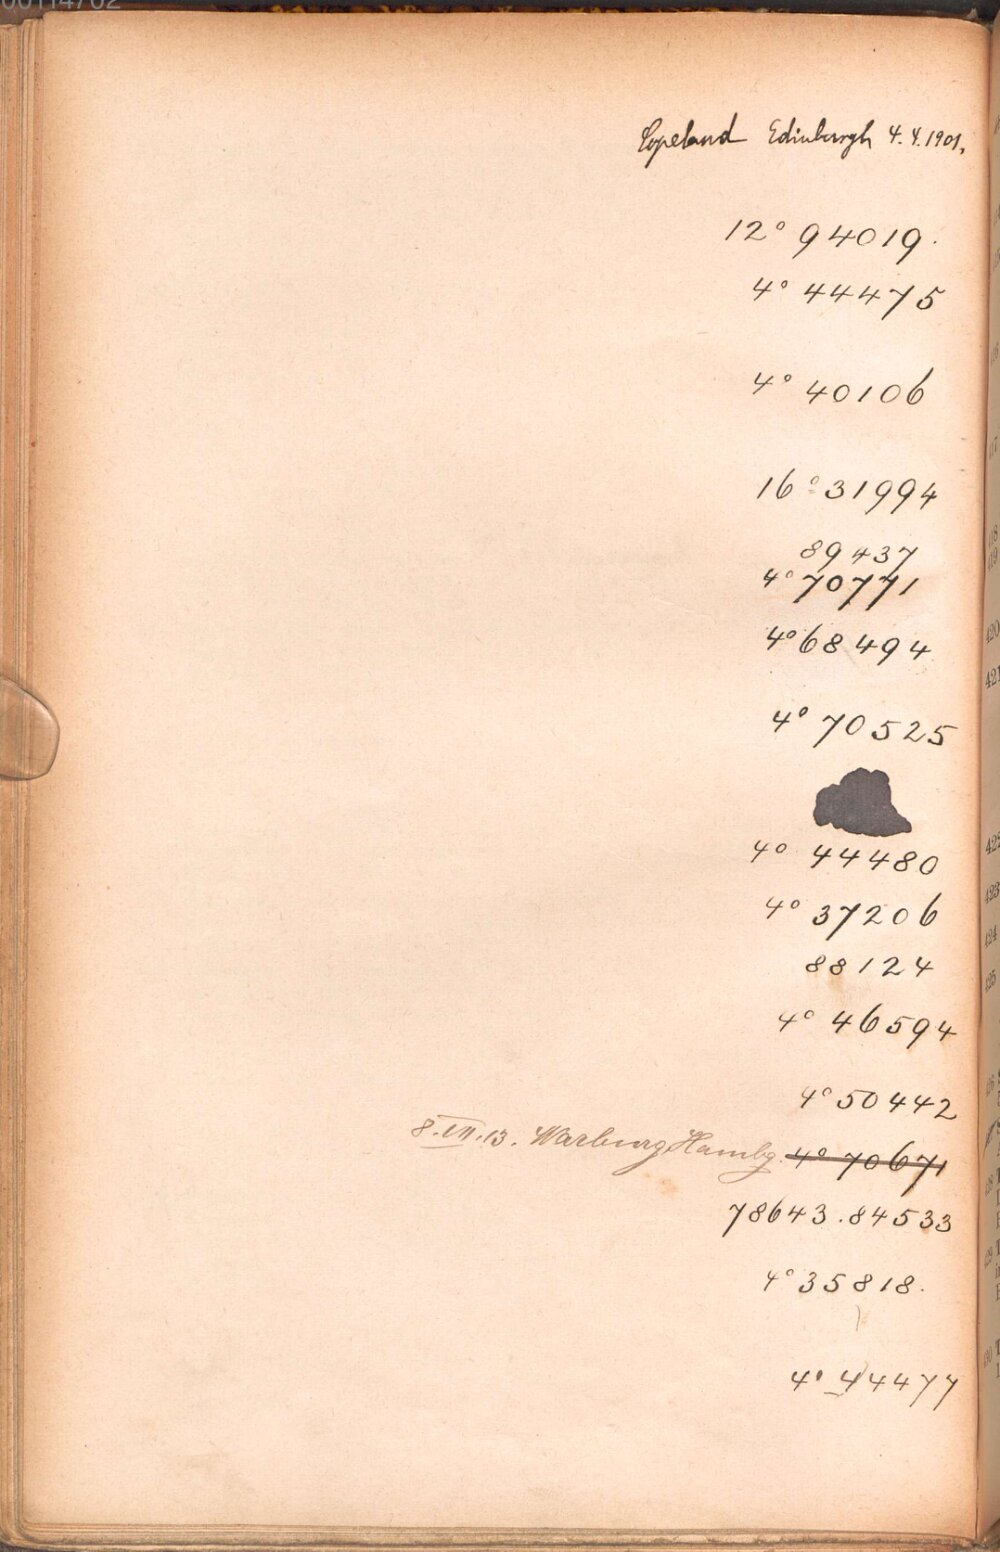 00114702
Copeland Edinburgh 4.4.1901.
12° 94019.
4° 44475
4° 40106
16° 31994
89437
4° 70771
4° 68494
4° 70525
4° 44480
4° 37206
88124
4° 46594
4° 50442
8.VII.13. Warburg Hambg. 4° 70671
78643.84533
4° 35818.
4° 44477
420
421
422
423
424
425